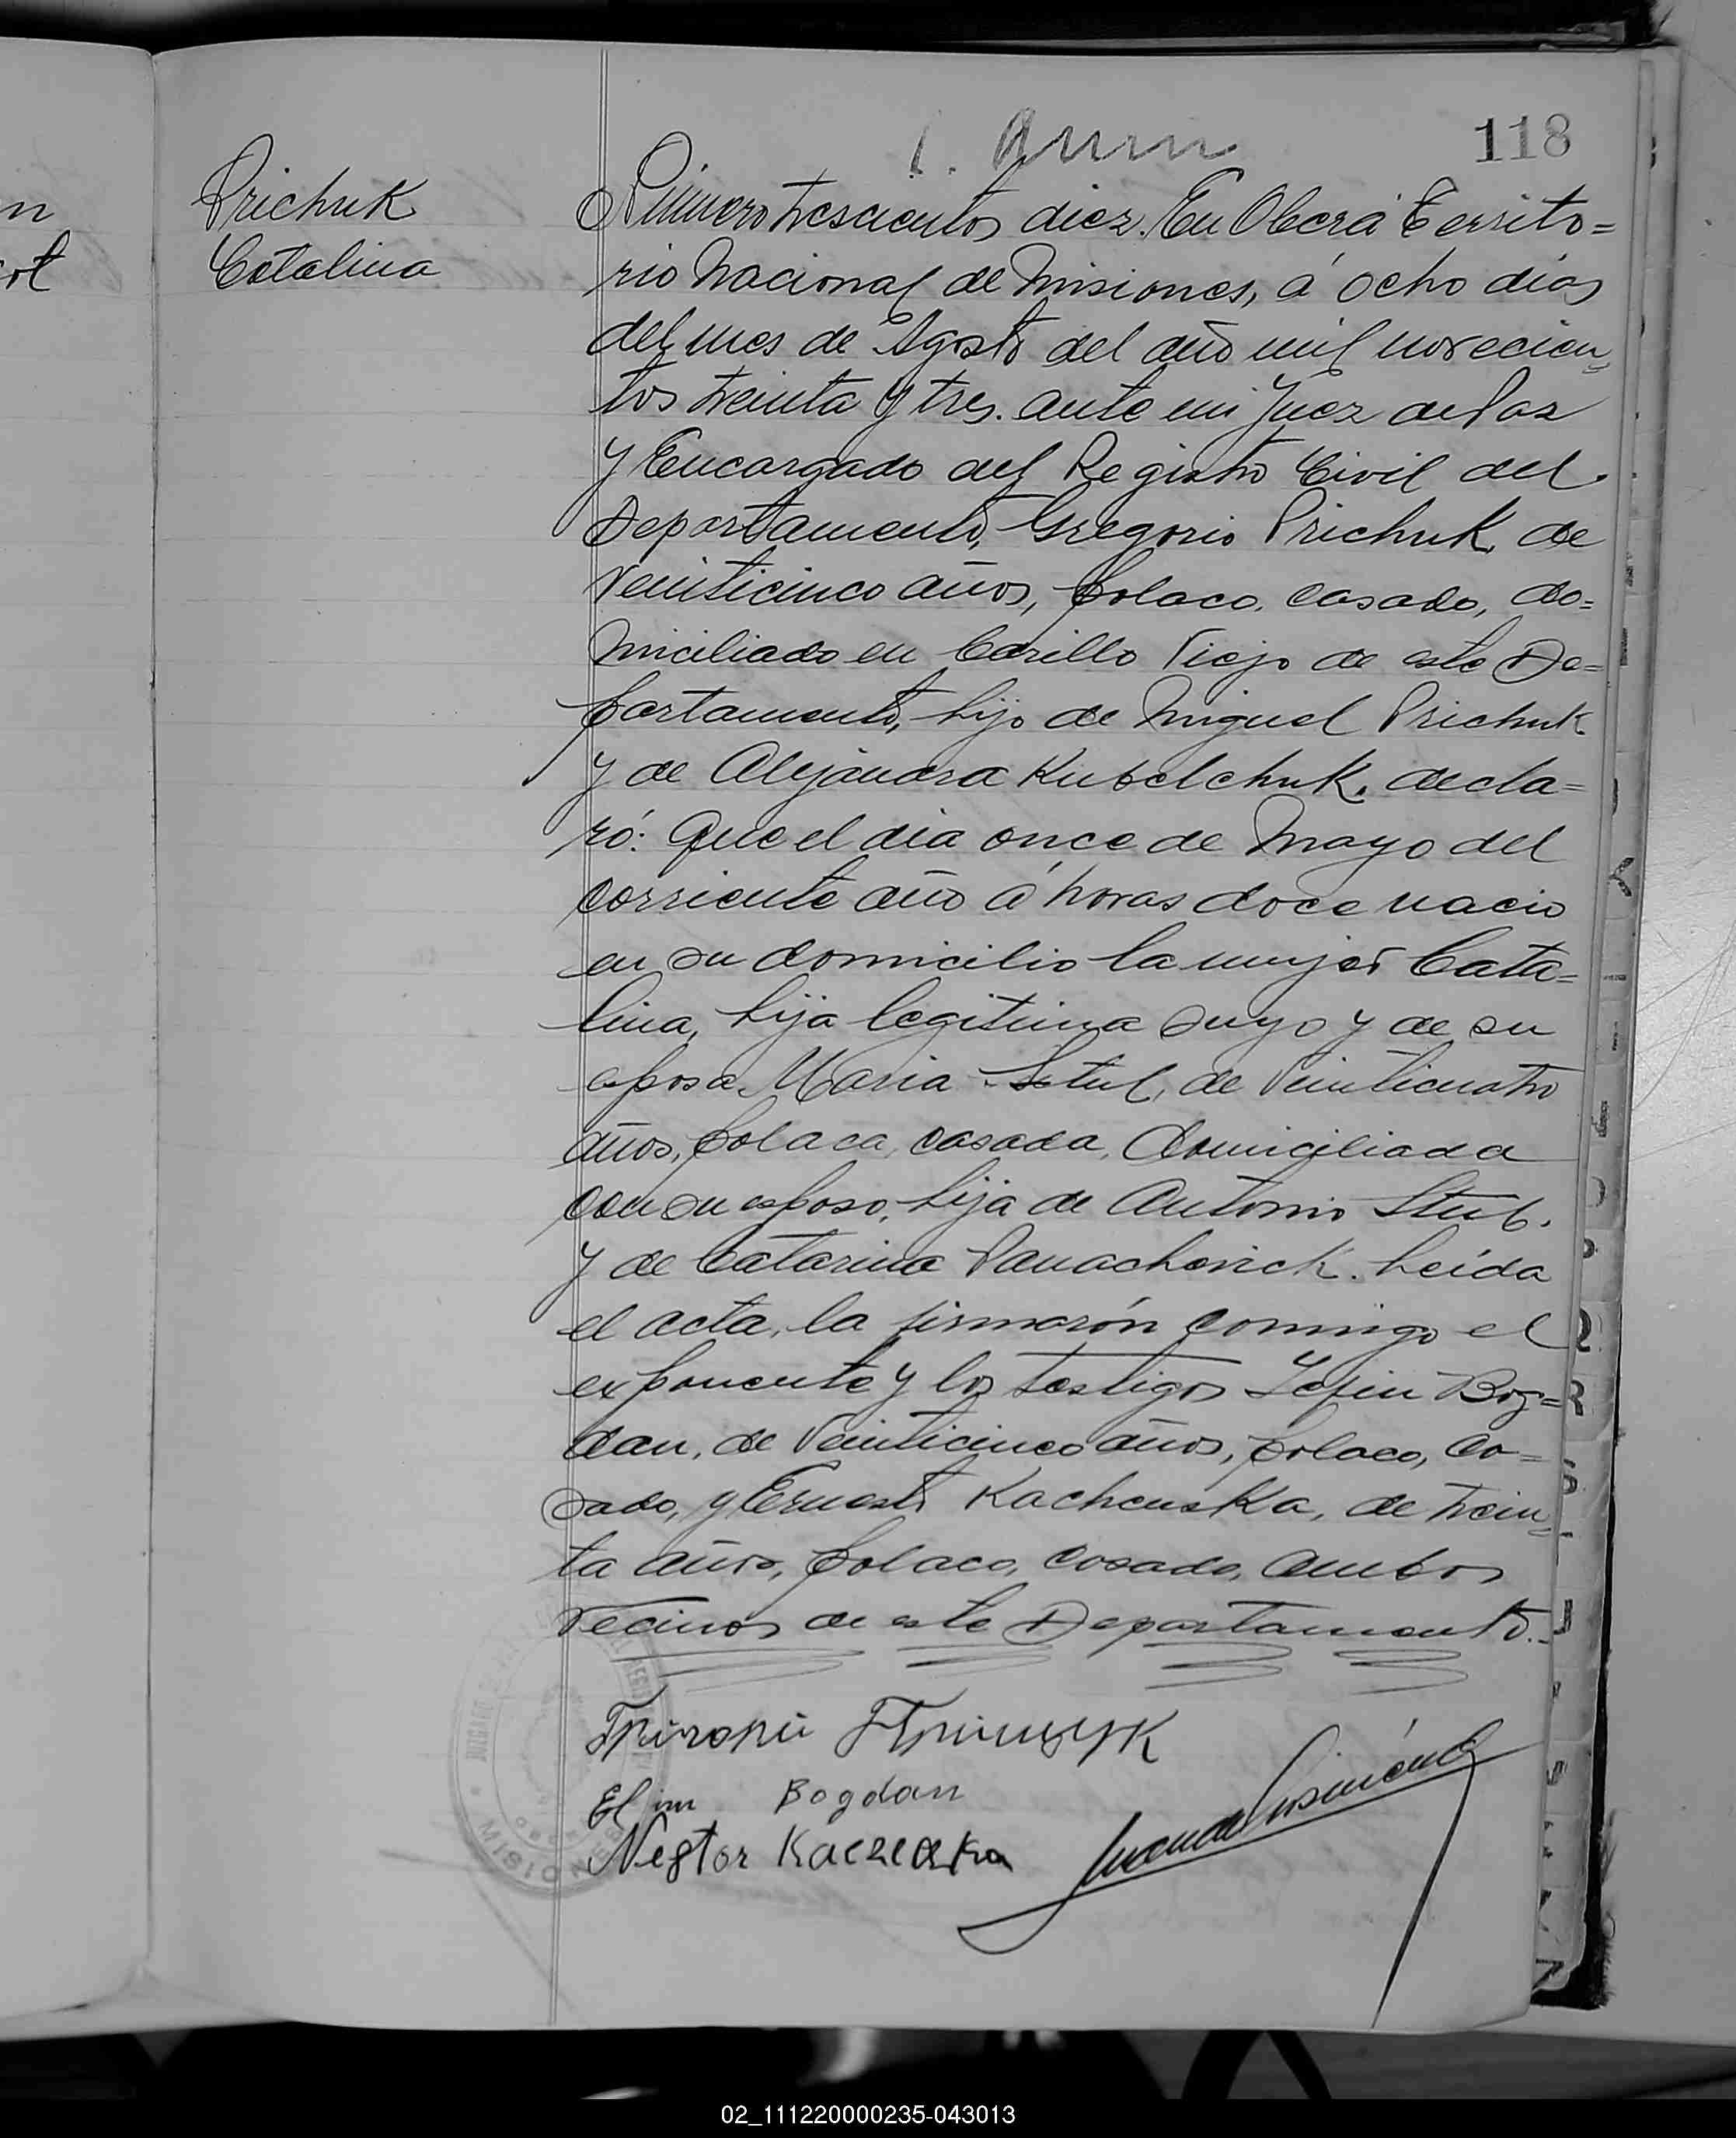 118
Prichuk
Catalina
Número trescientos diez. En Oberá Territo=
rio Nacional de Misiones, á ocho días
del mes de Agosto del año mil novecien=
tos treinta y tres. ante mi Juez de Paz
y Encargado del Registro Civil del
Departamento, Gregorio Prichuk, de
veinticinco años, polaco, casado, do=
miciliado en Cerillo Viejo de este De=
partamento, hijo de Miguel Prichuk
y de Alejandra Kubelchuk, decla=
ró: Que el día once de Mayo del
corriente año á horas doce nacio
en su domicilio la mujer Cata=
lina, hija legitima suya y de su
esposa Maria Stul, de veinticuatro
años, polaca, casada, domiciliada
con su esposo, hija de Antonio
y de Catarina Leída
el acta, la firmarón conmigo el
exponente y los testigos Jefin Bog=
dan, de veinticinco años, polaco, ca=
sado, y Ernesto Kachenska, de trein=
ta años, polaco, casado, ambos
vecinos de este Departamento.
Григорий Прищук
Efim Bogdan
Nestor
MISIONES
02_111220000235-043013